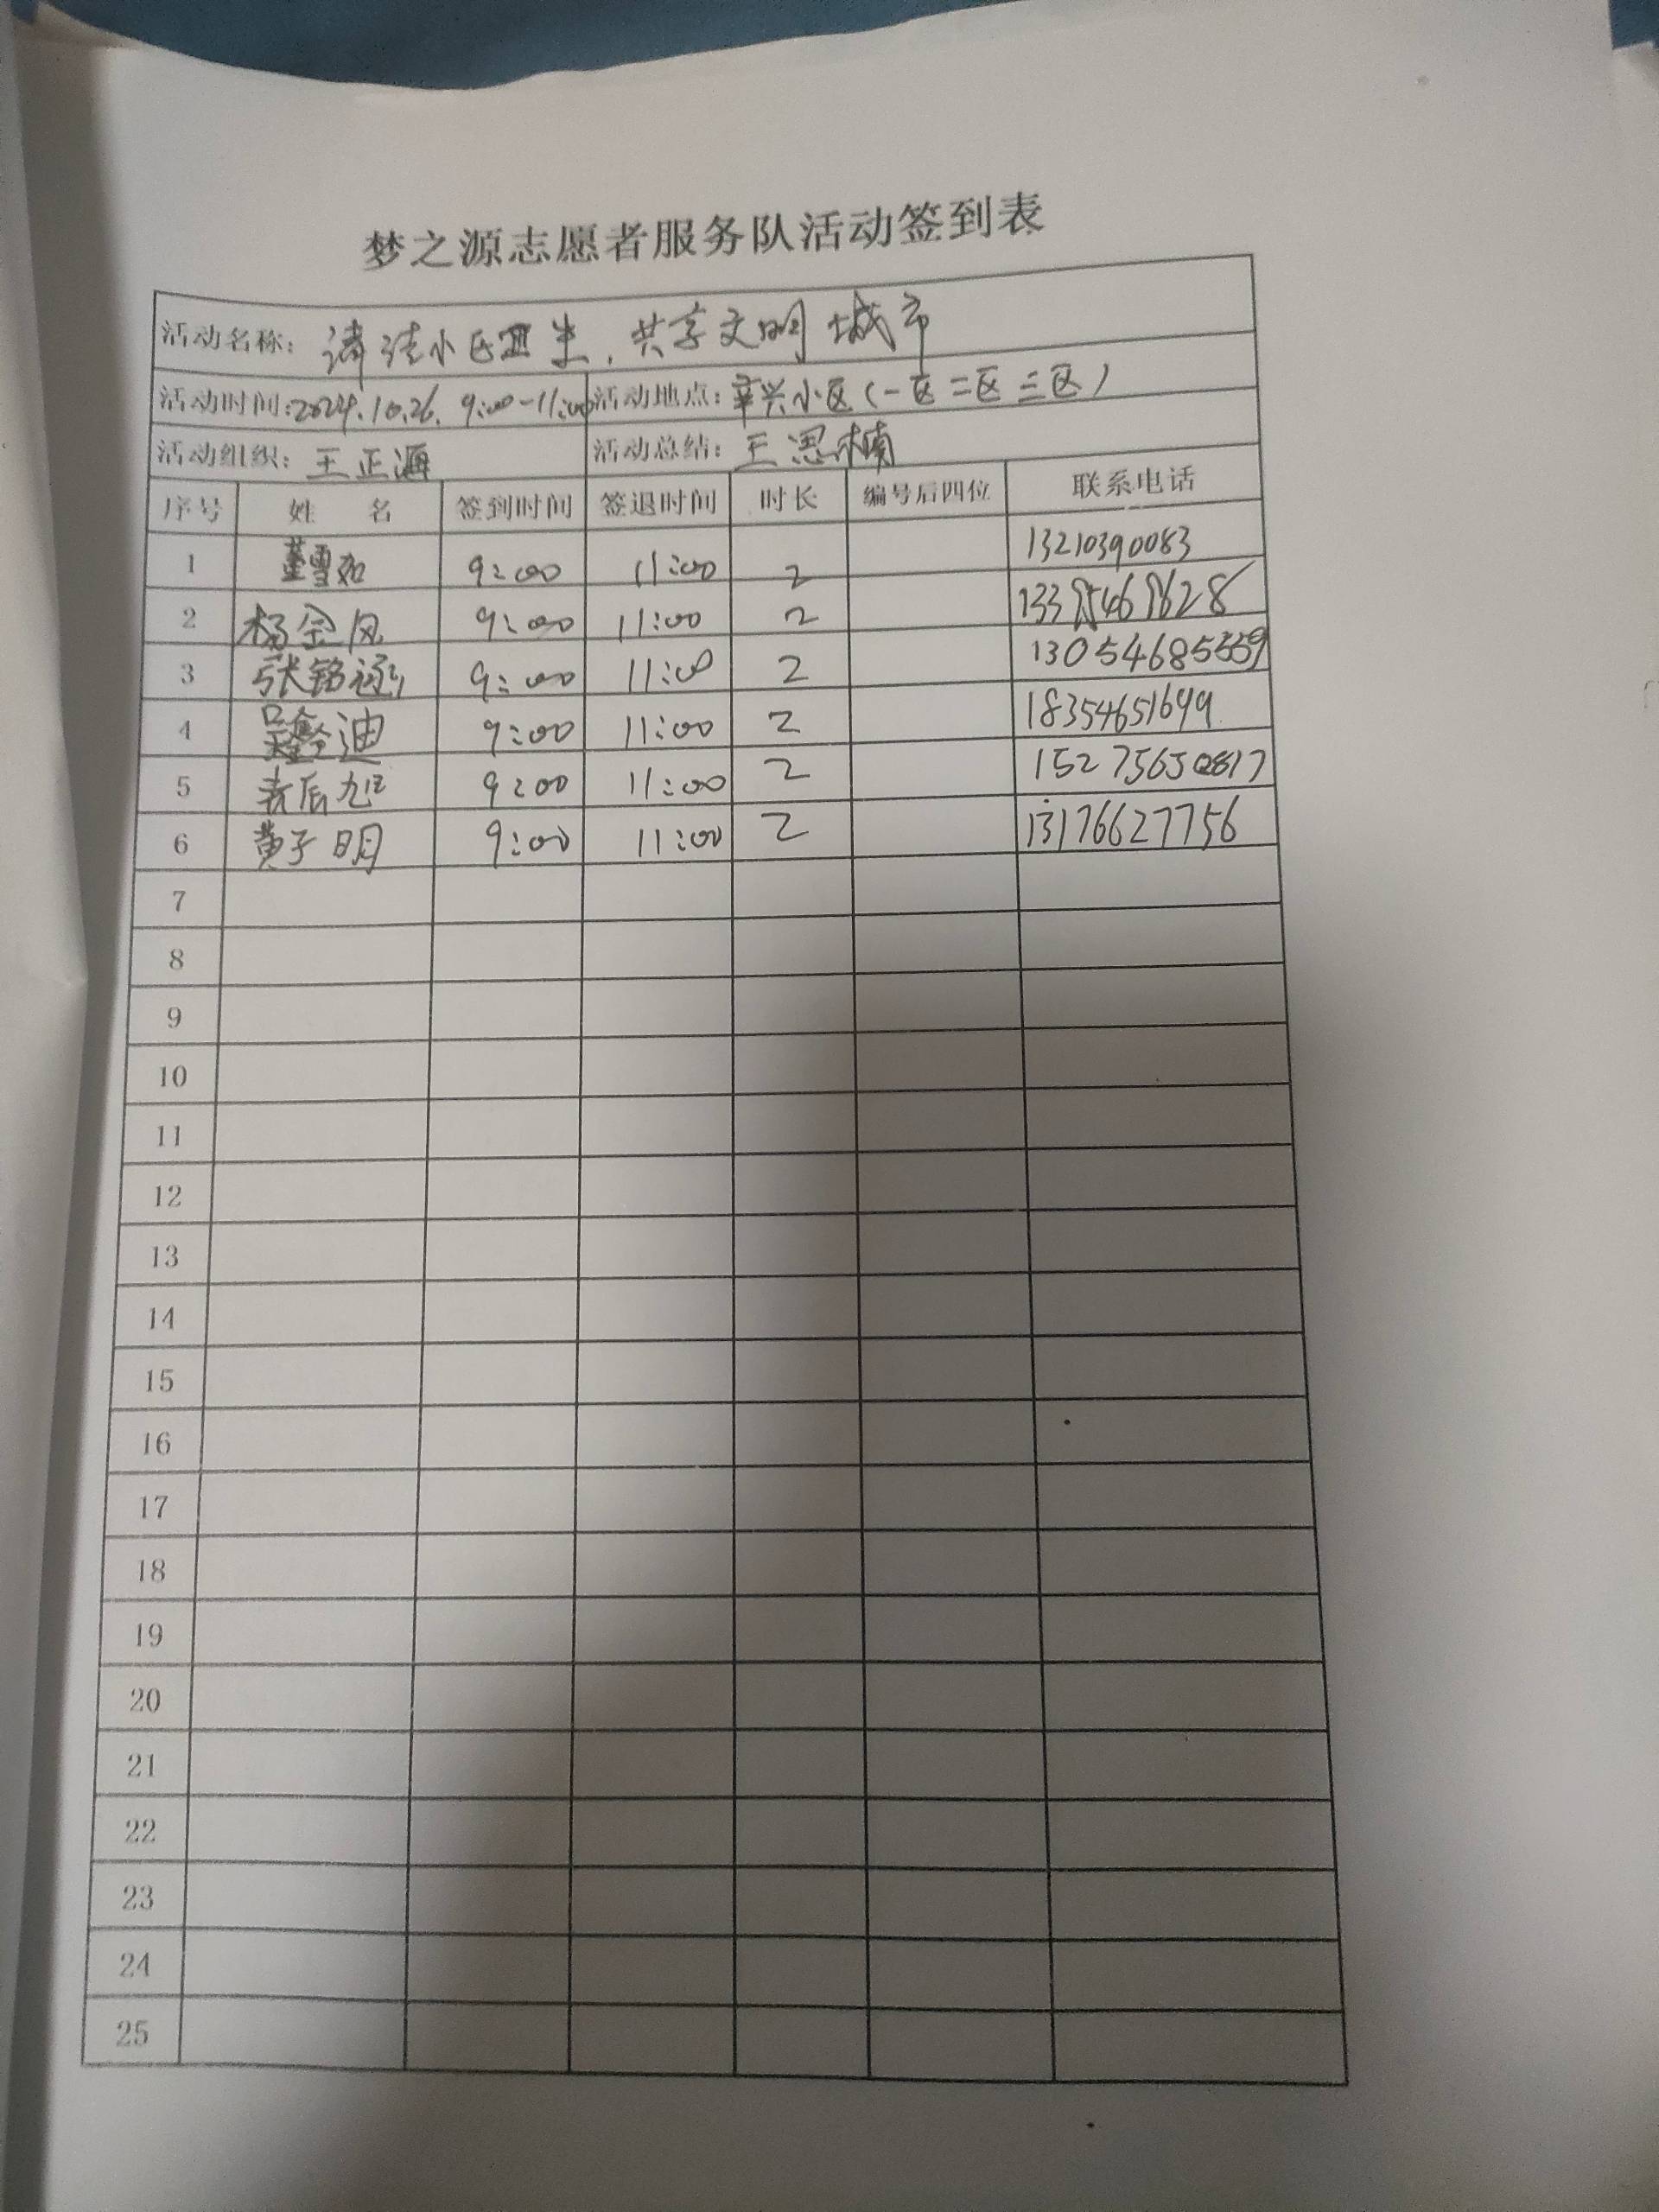 梦之源志愿者服务队活动签到表
活动名称: 清洁小区卫生,共享文明城市
活动时间:2024.10.26. 9:00-11:00 活动地点: 幸兴小区(一区二区三区)
活动组织: 王正海 活动总结: 王思楠
序号 姓 名 签到时间 签退时间 时长 编号后四位 联系电话
1 董雪如 9:00 11:00 2 13210390083
2 杨金凤 9:00 11:00 2
3 张铭 9:00 11:00 2 13054685559
4 迪 9:00 11:00 2 18354651699
5 9:00 11:00 2
6 黄子明 9:00 11:00 2 13176627756
7
8
9
10
11
12
13
14
15
16
17
18
19
20
21
22
23
24
25